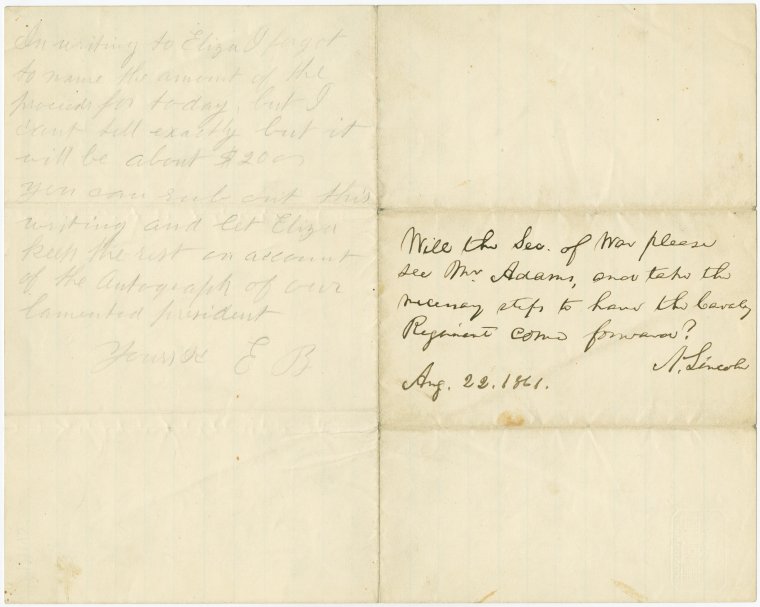 In writing to Eliza I forgot
to name the amount of the
proceeds for today, but I
cant tell exactly but it
will be about $200
you can rub out this
writing and let Eliza
keep the rest on account
of the Autograph of our
lamented president
Yours E B.
Will the Sec. of War please
see Mr. Adams, and take the
necessary steps to have the Cavalry
Regiment come forward?
A. Lincoln
Aug. 22. 1861.